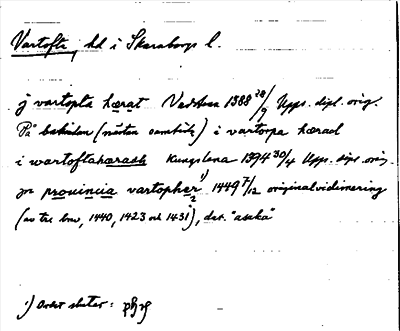 Vartofta, hd i Skaraborgs l.
j vartopta hærat Vadstena 1388 28/9 Upps. dipl. orig.
På baksidan (nästan samtida) i vartopa hærad
i wartoftahæradh Kungslena 1394 30/4 Upps. dipl. orig.
prouincia vartopher 1) 1449 7/12 originalvidimering
(av tre brev, 1440, 1423 och 1431), dat. "aseka"
1) Ordet slutar: